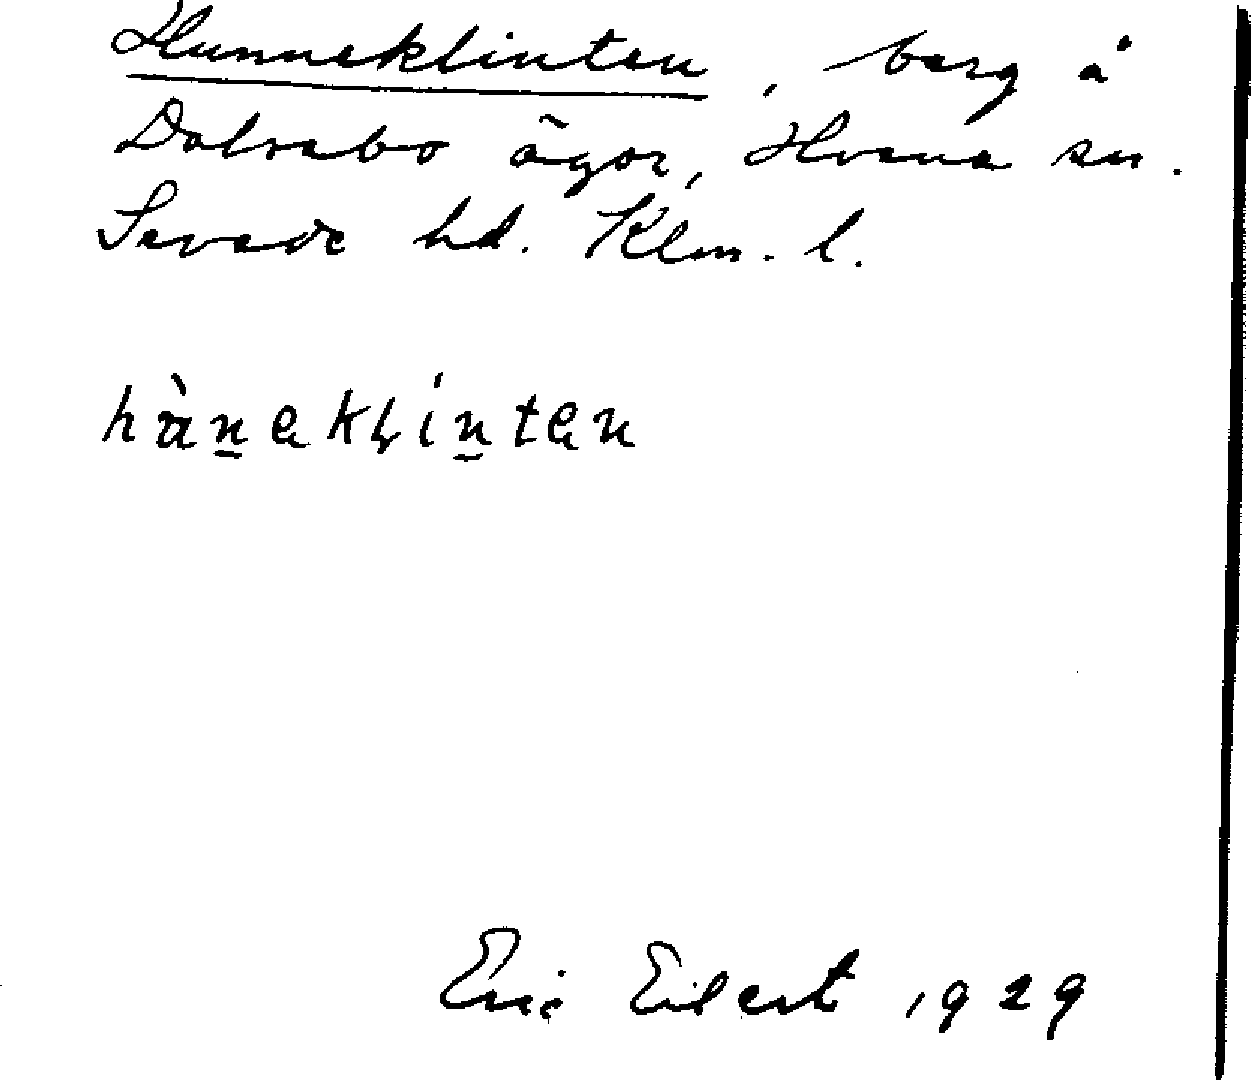 Hunneklinten, berg å
Dalsebo ägor, Hvena sn.
Sevede hd. Klm. l.
hàn̲ękļin̲tęn
Eric Eilert 1929